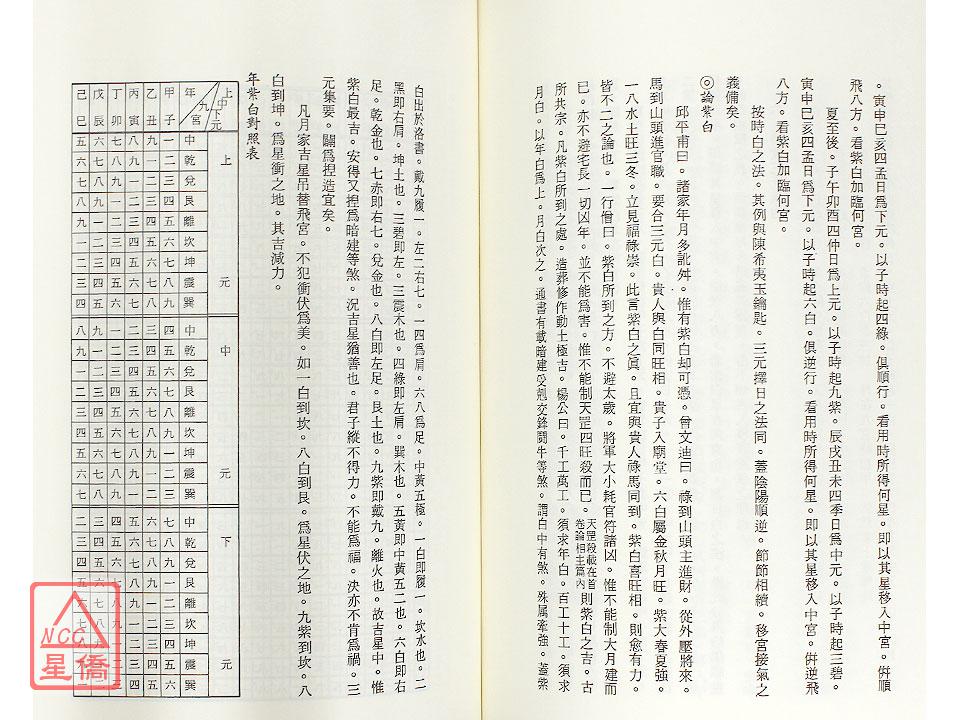 。寅申巳亥四孟日爲下元。以子時起四綠。俱順行。看用時所得何星。即以其星移入中宮。倂順
飛八方。看紫白加臨何宮。
夏至後。子午卯酉四仲日爲上元。以子時起九紫。辰戌丑未四季日爲中元。以子時起三碧。
寅申巳亥四孟日爲下元。以子時起六白。俱逆行。看用時所得何星。即以其星移入中宮。倂逆飛
八方。看紫白加臨何宮。
按時白之法。其例與陳希夷玉鑰匙。三元擇日之法同。蓋陰陽順逆。節節相續。移宮接氣之
義備矣。
◎論紫白
邱平甫曰。諸家年月多訛舛。惟有紫白却可憑。曾文迪曰。祿到山頭主進財。從外壓將來。
馬到山頭進官職。要合三元白。貴人與白同旺相。貴子入廟堂。六白屬金秋月旺。紫大春夏強。
一八水土旺三冬。立見福祿崇。此言紫白之眞。且宜與貴人祿馬同到。紫白喜旺相。則愈有力。
皆不二之論也。一行僧曰。紫白所到之方。不避太歲。將軍大小耗官符諸凶。惟不能制大月建而
已。亦不避宅長一切凶年。並不能爲害。惟不能制天罡四旺殺而已。天罡殺載在首卷論相主篇內則紫白之吉。古
所共宗。凡紫白所到之處。造葬修作動土極吉。楊公曰。千工萬工。須求年白。百工十工。須求
月白。以年白爲上。月白次之。通書有載暗建受剋交鋒鬪牛等煞。謂白中有煞。殊屬牽強。蓋紫
白出於洛書。戴九履一。左三右七。二四爲肩。六八爲足。中黃五極。一白即履一。坎水也。二
黑即右肩。坤土也。三碧即左。三震木也。四綠即左肩。巽木也。五黃即中黃五二也。六白即右
足。乾金也。七赤即右七。兌金也。八白即左足。艮土也。九紫即戴九。離火也。故吉星中。惟
紫白最吉。安得又揑爲暗建等煞。況吉星猶善也。君子縱不得力。不能爲福。決亦不肯爲禍。三
元集要。闢爲揑造宜矣。
凡月家吉星吊替飛宮。不犯衝伏爲美。如一白到坎。八白到艮。爲星伏之地。九紫到坎。八
白到坤。爲星衝之地。其吉減力。
年紫白對照表
上中下元 九宮 年 甲子 乙丑 丙寅 丁卯 戊辰 己巳
上元
中 一 九 八 七 六 五
乾 二 一 九 八 七 六
兌 三 二 一 九 八 七
艮 四 三 二 一 九 八
離 五 四 三 二 一 九
坎 六 五 四 三 二 一
坤 七 六 五 四 三 二
震 八 七 六 五 四 三
巽 九 八 七 六 五 四
中元
中 四 三 二 一 九 八
乾 五 四 三 二 一 九
兌 六 五 四 三 二 一
艮 七 六 五 四 三 二
離 八 七 六 五 四 三
坎 九 八 七 六 五 四
坤 一 九 八 七 六 五
震 二 一 九 八 七 六
巽 三 二 一 九 八 七
下元
中 七 六 五 四 三 二
乾 八 七 六 五 四 三
兌 九 八 七 六 五 四
艮 一 九 八 七 六 五
離 二 一 九 八 七 六
坎 三 二 一 九 八 七
坤 四 三 二 一 九 八
震 五 四 三 二
巽 六 五 四 三 二 一
NCC
星僑